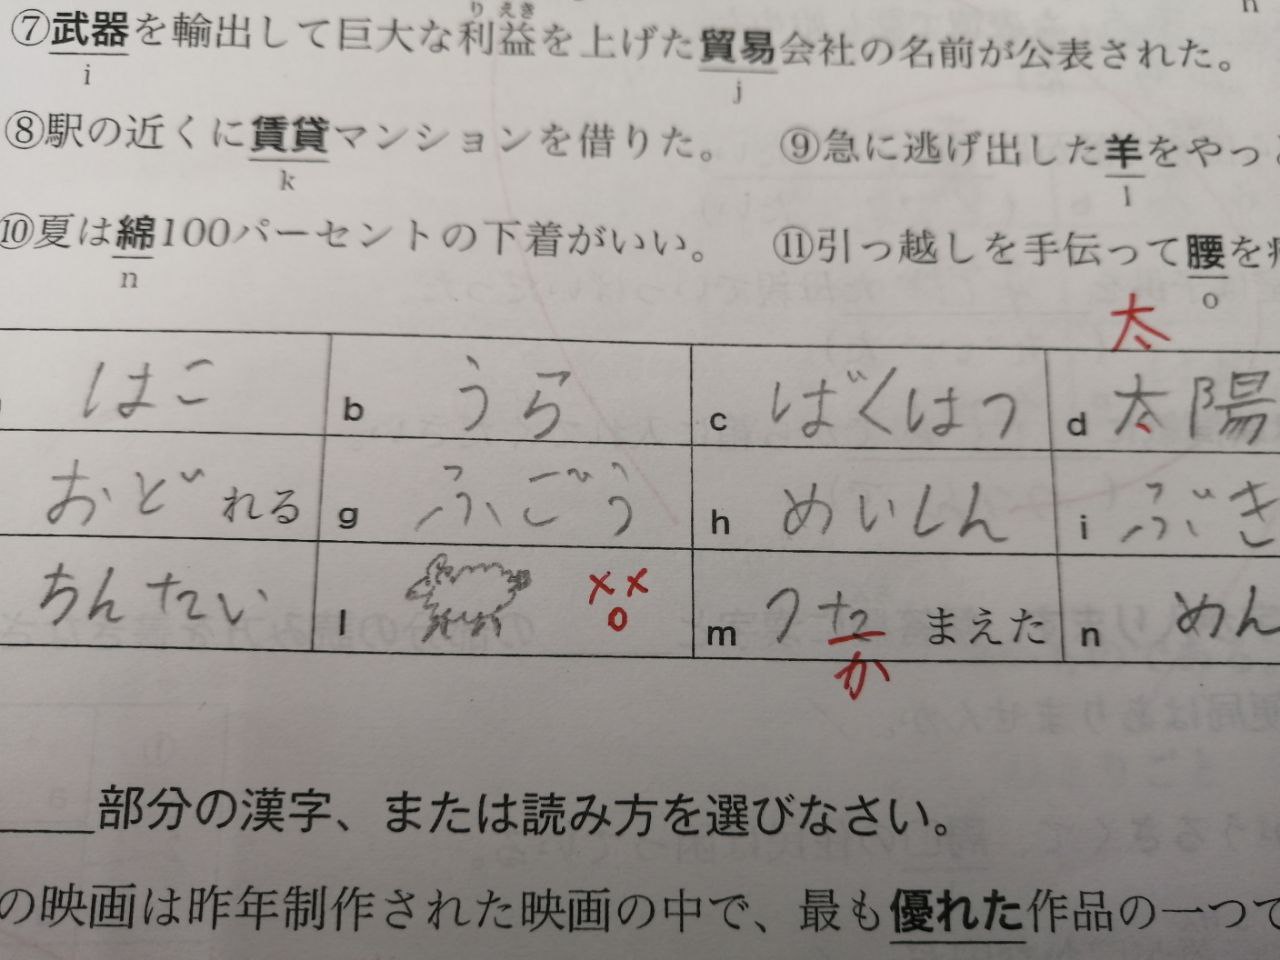 りえき
⑦武器を輸出して巨大な利益を上げた貿易会社の名前が公表された。
i j
⑧駅の近くに賃貸マンションを借りた。 ⑨急に逃げ出した羊をやっと
k l
⑩夏は綿100パーセントの下着がいい。 ⑪引っ越しを手伝って腰を
n o
太
はこ b うら c ばくはつ d 太陽
おどれる g ふごう h めいしん i ぶき
ちんたい l ××
o
m つたまえた n めん
か
部分の漢字、または読み方を選びなさい。
の映画は昨年制作された映画の中で、最も優れた作品の一つで